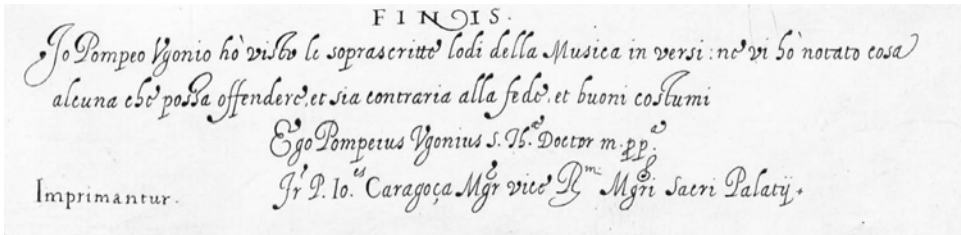 FINIS.
Io Pompeo Vgonio hò visto le soprascritte lodi della Musica in versi: ne vi hò notato cosa
alcuna che possa offendere, et sia contraria alla fede, et buoni costumi
Ego Pompeius Vgonius S. Th.ᵉ Doctor m. pp.ᵃ
Imprimantur. Fr. P. Io.es Caragoça Mgr̃ vice R.mi Mgr̃i Sacri Palatij.